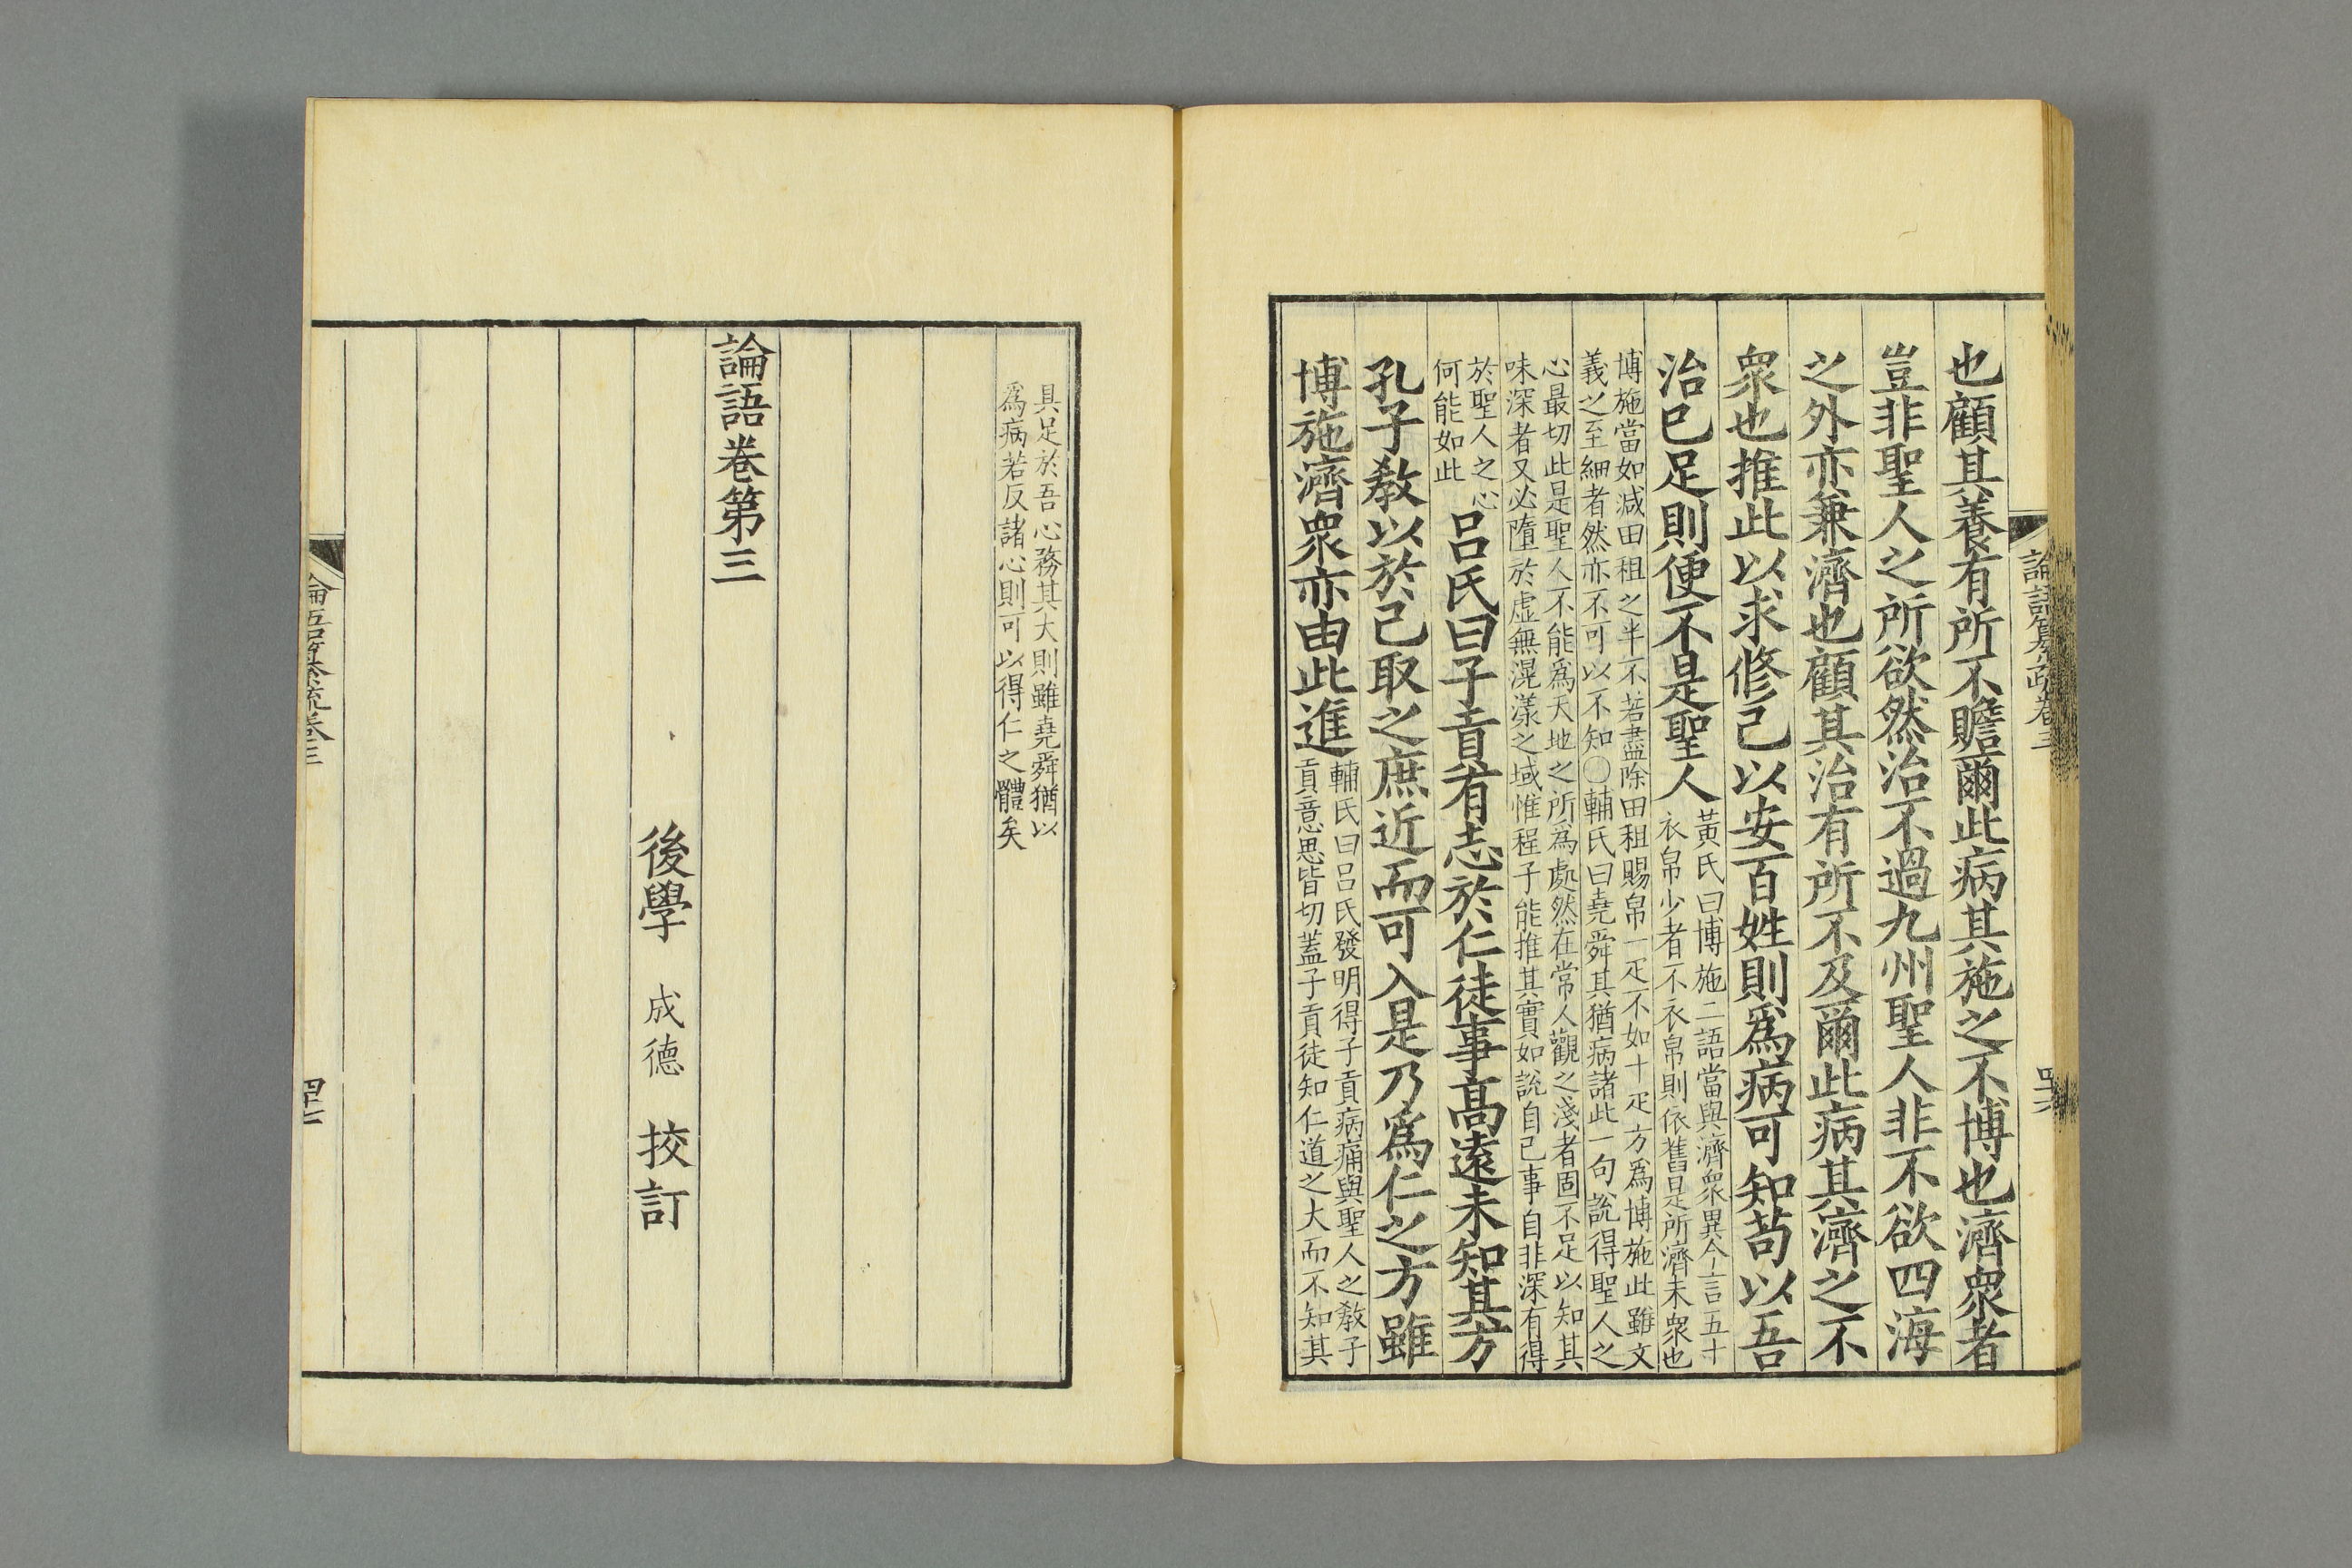 也顧其養有所不贍爾此病其施之不博也濟衆者
豈非聖人之所欲然治不過九州聖人非不欲四海
之外亦兼濟也顧其治有所不及爾此病其濟之不
衆也推此以求修己以安百姓則爲病可知苟以吾
治已足則便不是聖人
黃氏曰博施二語當與濟衆異今言五十
衣帛少者不衣帛則依舊是所濟未衆也
博施當如減田租之半不若盡除田租賜帛一疋不如十疋方爲博施此雖文
義之至細者然亦不可以不知○輔氏曰堯舜其猶病諸此一句說得聖人之
心最切此是聖人不能爲天地之所爲處然在常人觀之淺者固不足以知其
味深者又必墮於虛無滉漾之域惟程子能推其實如說自己事自非深有得
於聖人之心
何能如此
呂氏曰子貢有志於仁徒事高遠未知其方
孔子教以於己取之庶近而可入是乃爲仁之方雖
博施濟衆亦由此進
輔氏曰呂氏發明得子貢病痛與聖人之教子
貢意思皆切蓋子貢徒知仁道之大而不知其
論語纂疏卷三
具足於吾心務其大則雖堯舜猶以
爲病若反諸心則可以得仁之體矣
論語卷第三
後學 成德 挍訂
論語纂疏卷三
四十七